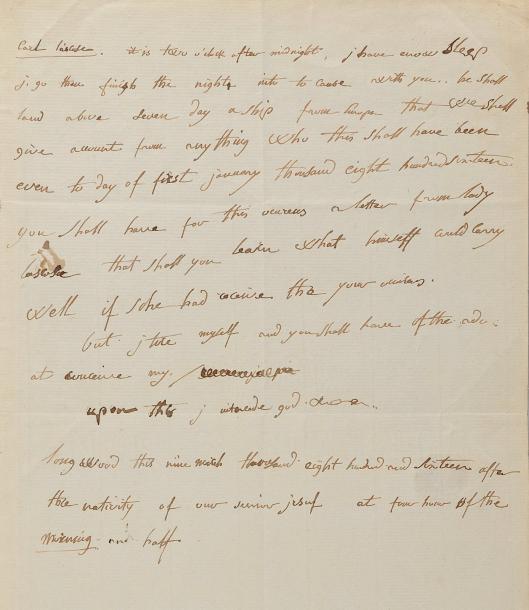 Count lascases. it is two o'clock after midnight, j have enow sleep
j go then finish the night into to cause with you.. he shall
land above seven day a ship from Europe that we shall
give account from anything who this shall have been
even to day of first january thousand eight hundred sixteen.
you shall have for this ocurens a letter from lady
lascases that shall you learn what himself could carry
well if she had conceive the your occurens.
but j tire myself and you shall have of the ado:
at conceive my
upon this j intercede god
longwood this nine march thousand eight hundred and sixteen after
the nativity of our savior jesus at four hour of the
morning and half